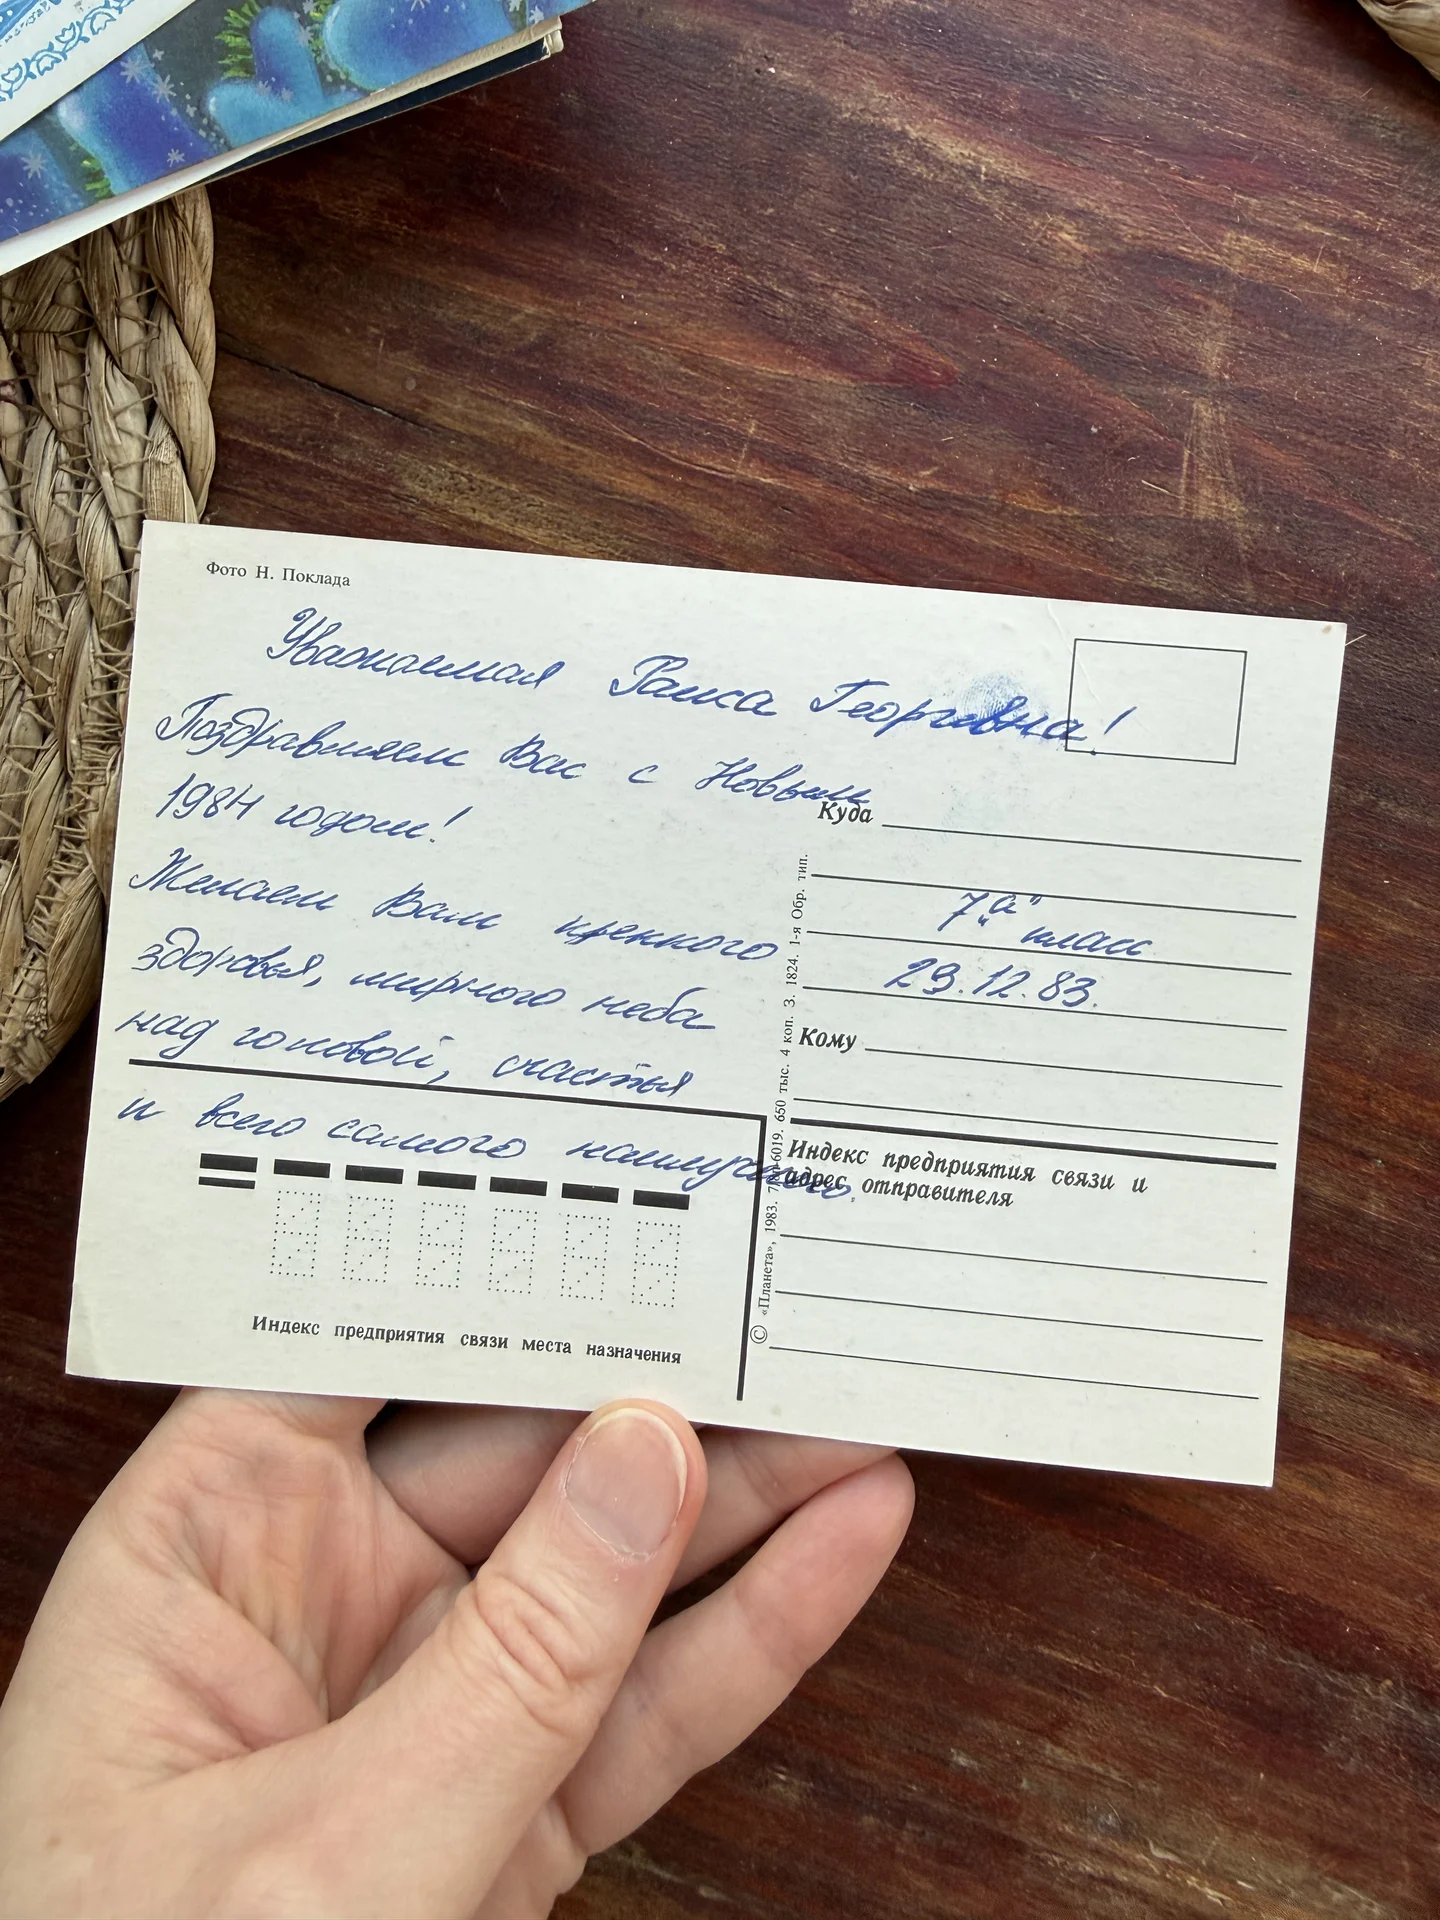 Фото Н. Поклада
Уважаемая Раиса Георгивна!
Поздравляем Вас с Новым
1984 годом!
Желаем Вам крепкого
здоровья, мирного неба
над головой, счастья
и всего самого наилучшего.
Куда
7 „а“ класс
29.12.83.
Кому
Индекс предприятия связи и
адрес отправителя
Индекс предприятия связи места назначения
© «Планета», 1983. 6019. 650 тыс. 4 коп. З. 1824. 1-я Обр. тип.